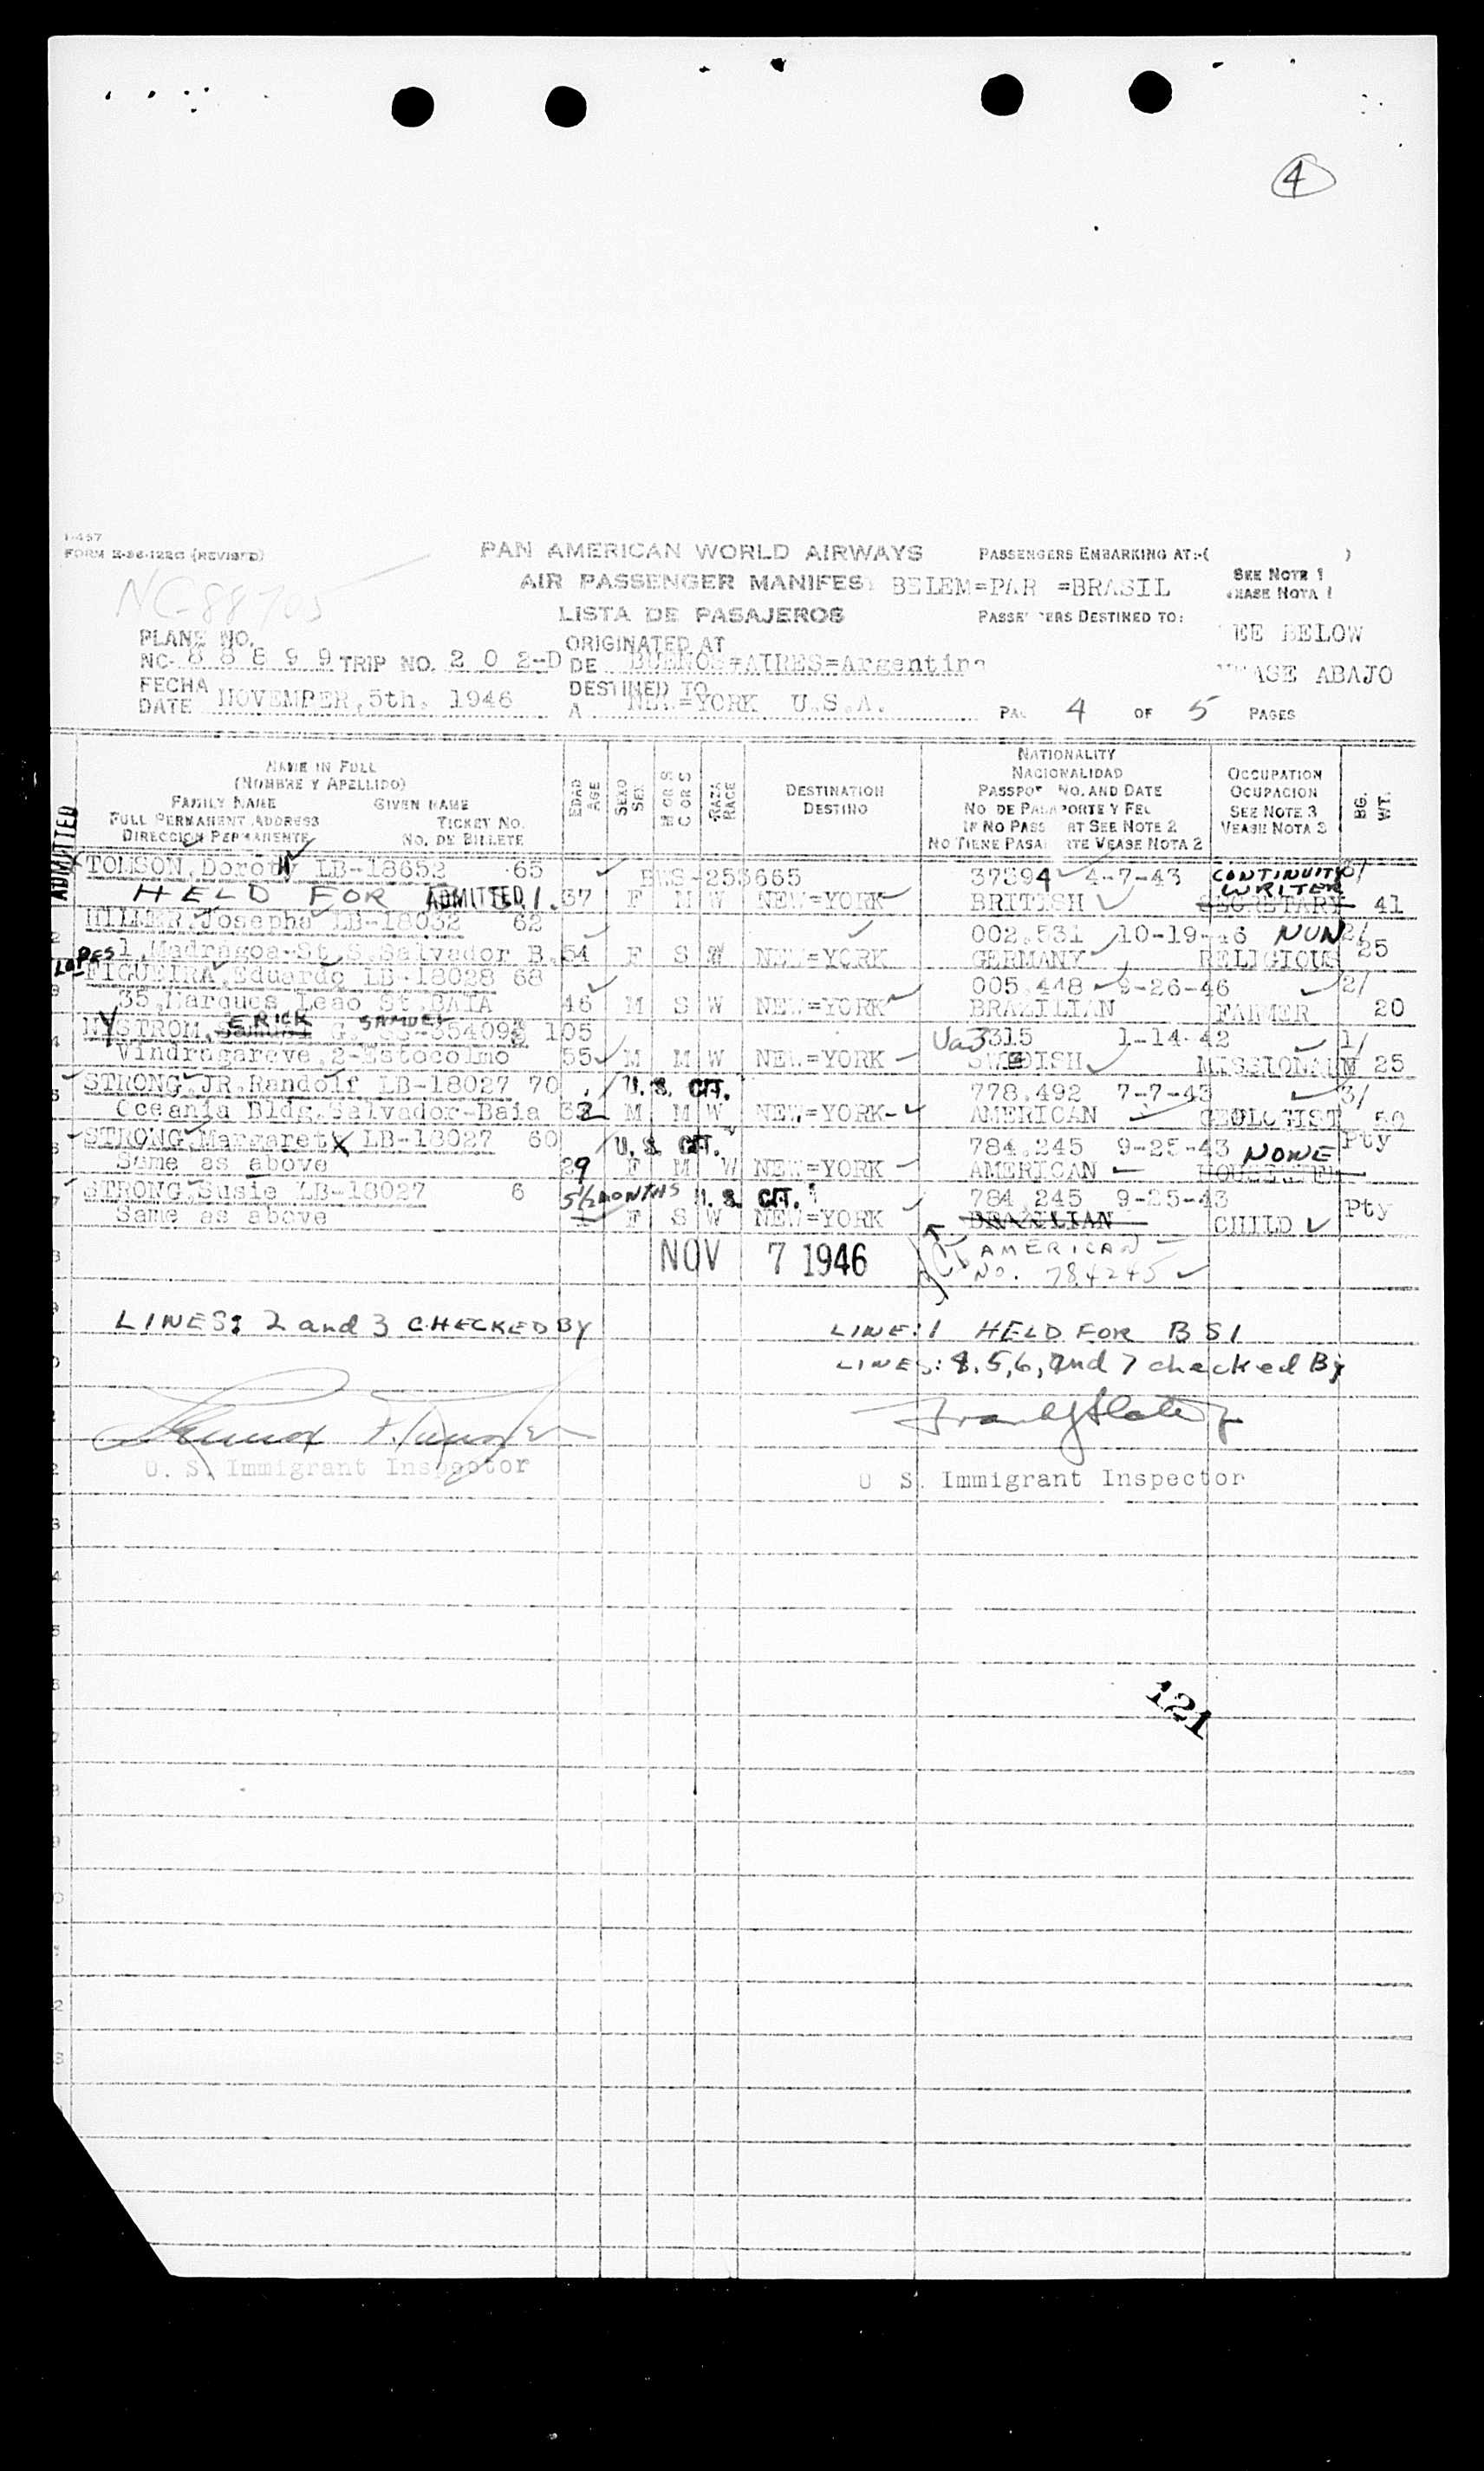 4
I-457
FORM E-86-122C (REVISED)
PAN AMERICAN WORLD AIRWAYS
PASSENGERS EMBARKING AT:-( )
AIR PASSENGER MANIFES BELEM=PAR =BRASIL
SEE NOTE 1
EASE NOTA 1
NC-88705
LISTA DE PASAJEROS
PASSE ERS DESTINED TO:
EE BELOW
PLANE NO.
NC- 8 8 8 9 9 TRIP NO. 2 0 2-D
ORIGINATED AT
DE BUENOS=AIRES=Argentina
ASE ABAJO
FECHA
DATE NOVEMBER, 5th. 1946
DESTINED TO
A NEW=YORK U.S.A.
PA 4 OF 5 PAGES
NAME IN FULL
(NOMBRE Y APELLIDO)
FAMILY NAME GIVEN NAME
FULL PERMANENT ADDRESS TICKET NO.
DIRECCION PERMANENTE NO. DE BILLETE
EDAD AGE
SEXO SEX
M OR S
C O R S
RAZA RACE
DESTINATION
DESTINO
NATIONALITY
NACIONALIDAD
PASSPO NO. AND DATE
NO. DE PASAPORTE Y FEC
IF NO PASS RT SEE NOTE 2
NO TIENE PASA RTE VEASE NOTA 2
OCCUPATION
OCUPACION
SEE NOTE 3
VEASE NOTA 3
BG. WT.
ADMITTED
TOMSON, Doroth LB-18652 65 BWS-253665 37394 4-7-43 CONTINUITY WRITER
HELD FOR ADMITTED 37 F M W NEW=YORK BRITISH SECRETARY 41
Josepha LB-18032 62 002.531 10-19-46 NUN 2/
1, Madragoa-St. S. Salvador B. 54 F S W NEW=YORK GERMANY RELIGIOUS 25
LOPES FIGUEIRA, Eduardo LB-18028 68 005.448 9-26-46 2/
35, Marques Leao St. BAIA 46 M S W NEW=YORK BRAZILIAN FARMER 20
NYSTROM, ERICK SAMUEL G. 105 3315 1-14-42 1/
Vindragareve, 2-Estocolmo 55 M M W NEW=YORK SWEDISH MISSIONARY 25
STRONG, JR. Randolf LB-18027 70 U. S. CIT. 778.492 7-7-43 3/
Oceania Bldg. Salvador-Baia 32 M M W NEW=YORK- AMERICAN GEOLOGIST 50
STRONG, Margaret LB-18027 60 U. S. CIT. 784.245 9-25-43 NONE Pty
Same as above 29 F M W NEW=YORK AMERICAN HOUSEWIFE
STRONG, Susie LB-18027 6 5½ MONTHS U. S. CIT. 784.245 9-25-43 Pty
Same as above F S W NEW=YORK BRAZILIAN CHILD
NOV 7 1946
AMERICAN
NO. 784245
LINES: 2 and 3 CHECKED BY
LINE: 1 HELD FOR BSI
LINES: 4, 5, 6, and 7 checked By
U. S. Immigrant Inspector
U S. Immigrant Inspector
121